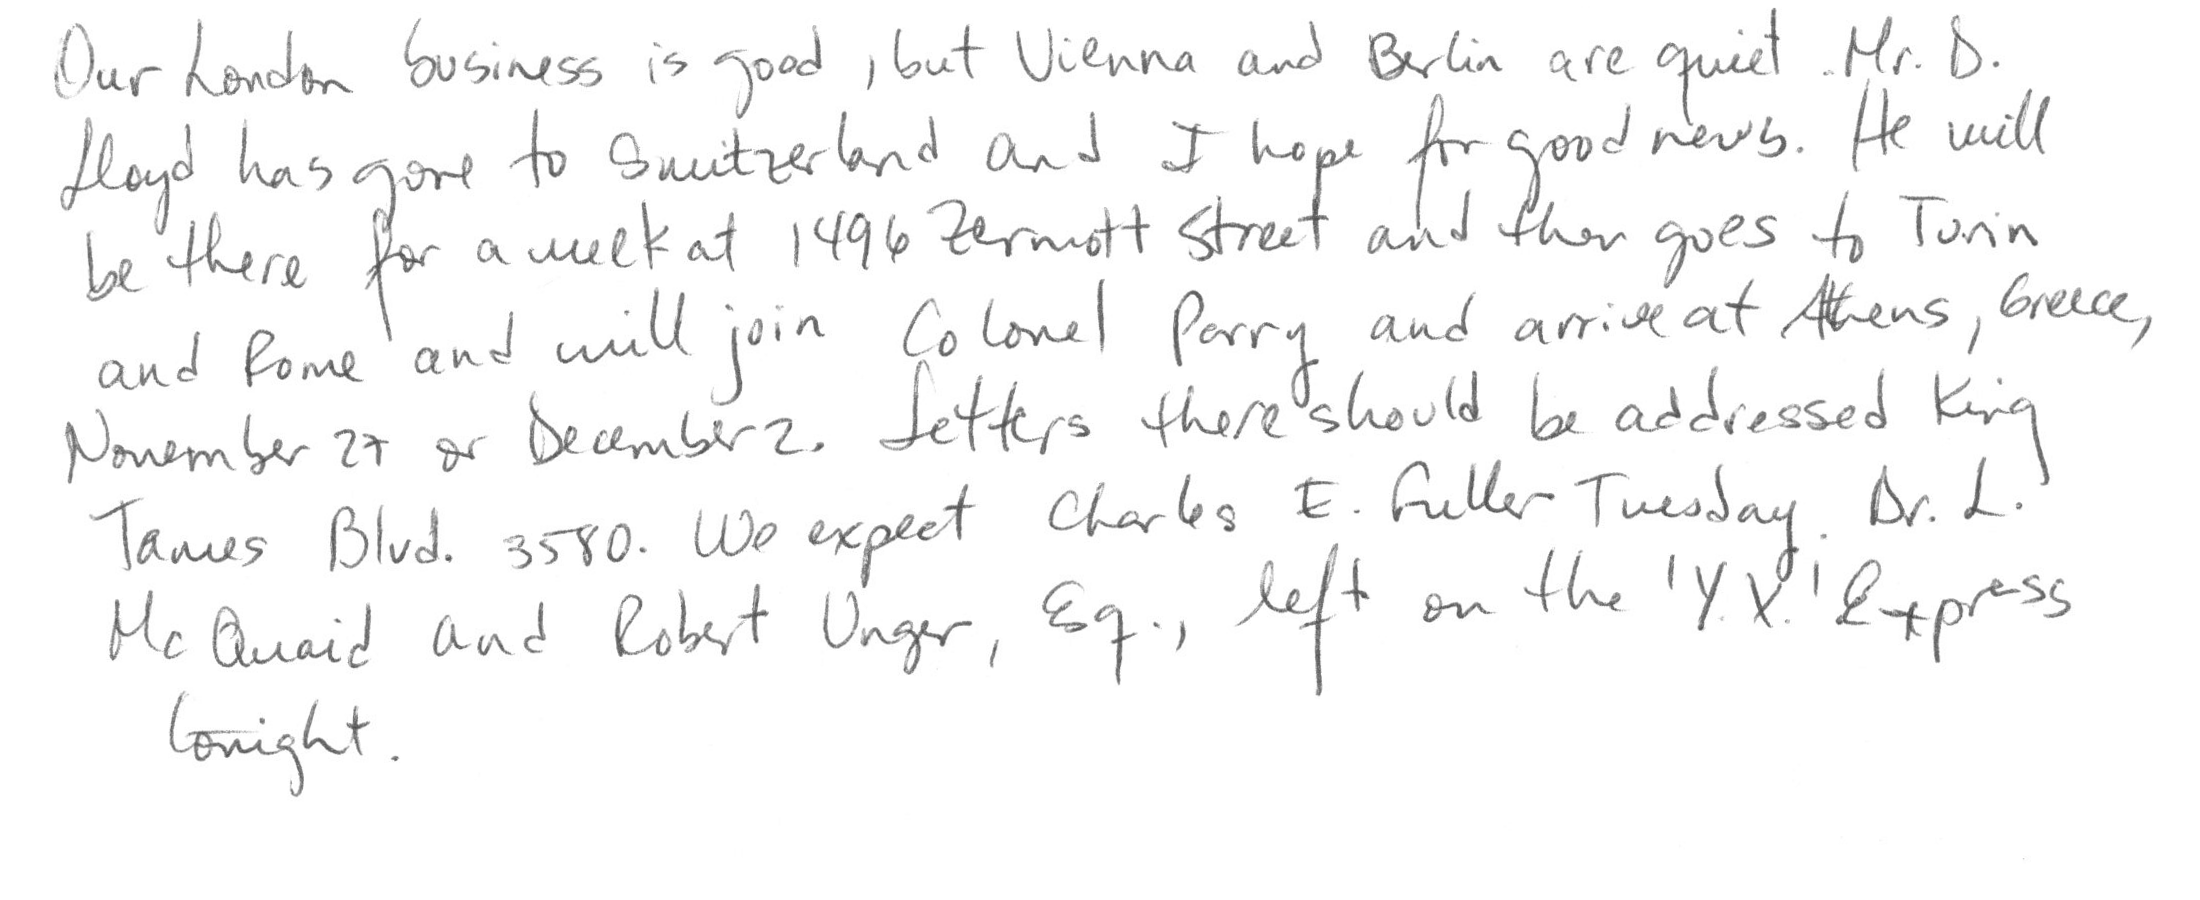 Our London business is good, but Vienna and Berlin are quiet. Mr. D.
Lloyd has gone to Switzerland and I hope for good news. He will
be there for a week at 1496 Zermott Street and then goes to Turin
and Rome and will join Colonel Parry and arrive at Athens, Greece,
November 27 or December 2. Letters there should be addressed King
James Blvd. 3580. We expect Charles E. Fuller Tuesday. Dr. L.
McQuaid and Robert Unger, Eq., left on the 'Y.X.' Express
tonight.